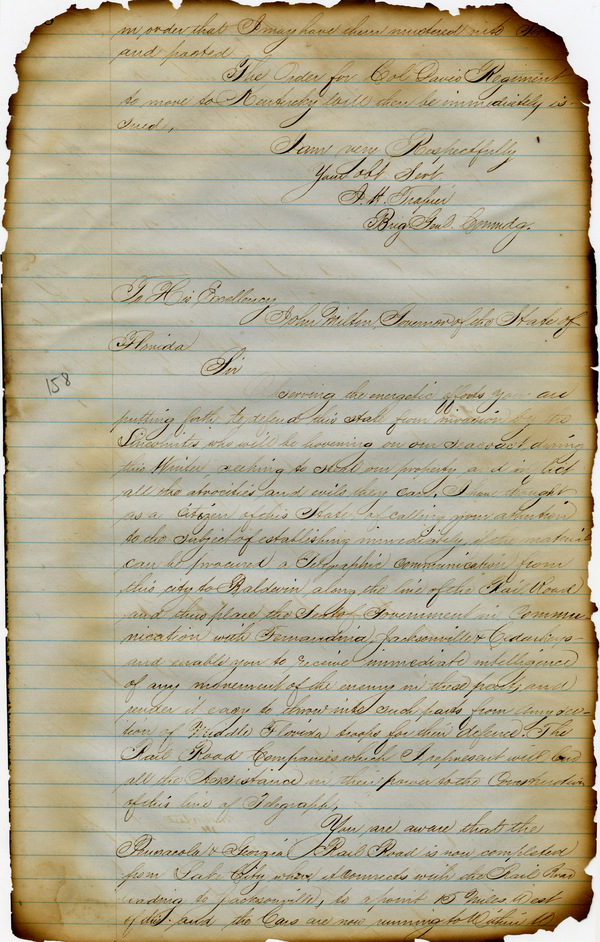 in order that I may have them mustered into
and posted
The Order for Col Davis Regiment
to move to Kentucky will then be immediately is-
sued,
I am very Respectfully
Your obt Servt
J. H. Trapier
Brig Genl Commdg.
To His Excellency
John Milton, Governor of the State of
Florida
Sir
158
serving the energetic efforts you are
putting forth to defend this State from invasion by the
Lincolnites who will be hovering on our seacoast during
this Winter seeking to steal our property and inflict
all the atrocities and evils they can, I have thought
as a Citizen of this State of calling your attention
to the subject of establishing immediately, if the material
can be procured a Telegraphic communication from
this city to Baldwin along the line of the Rail Road
and thus place the Seat of Government in Commu-
nication with Fernandina, Jacksonville & Cedar Keys
and enable you to receive immediate intelligence
of any movement of the enemy in those ports, and
render it easy to throw into such parts from any sec-
tion of Middle Florida troops for their defence. The
Rail Road Companies which I represent will lend
all the Assistance in their power to the Construction
of this line of Telegraph,
You are aware that the
Pensacola & Georgia Rail Road is now completed
from Lake City where it connects with the Rail Road
leading to Jacksonville, to a point 15 Miles West
of this and the Cars are now running to within